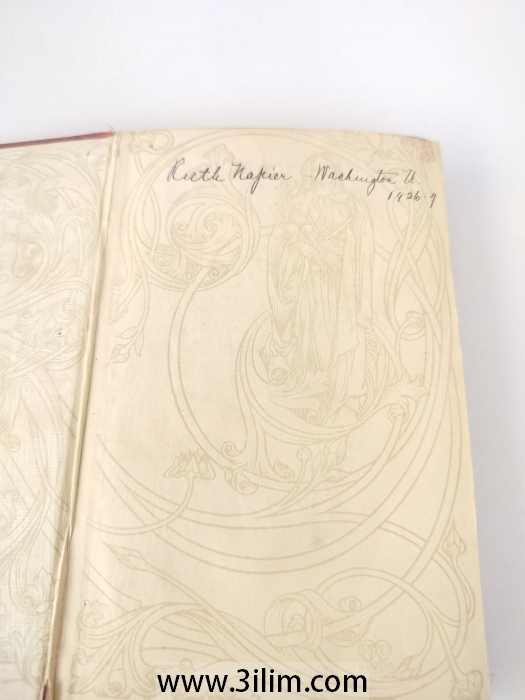 Ruth Napier - Washington U.
1926-7
www.3ilim.com